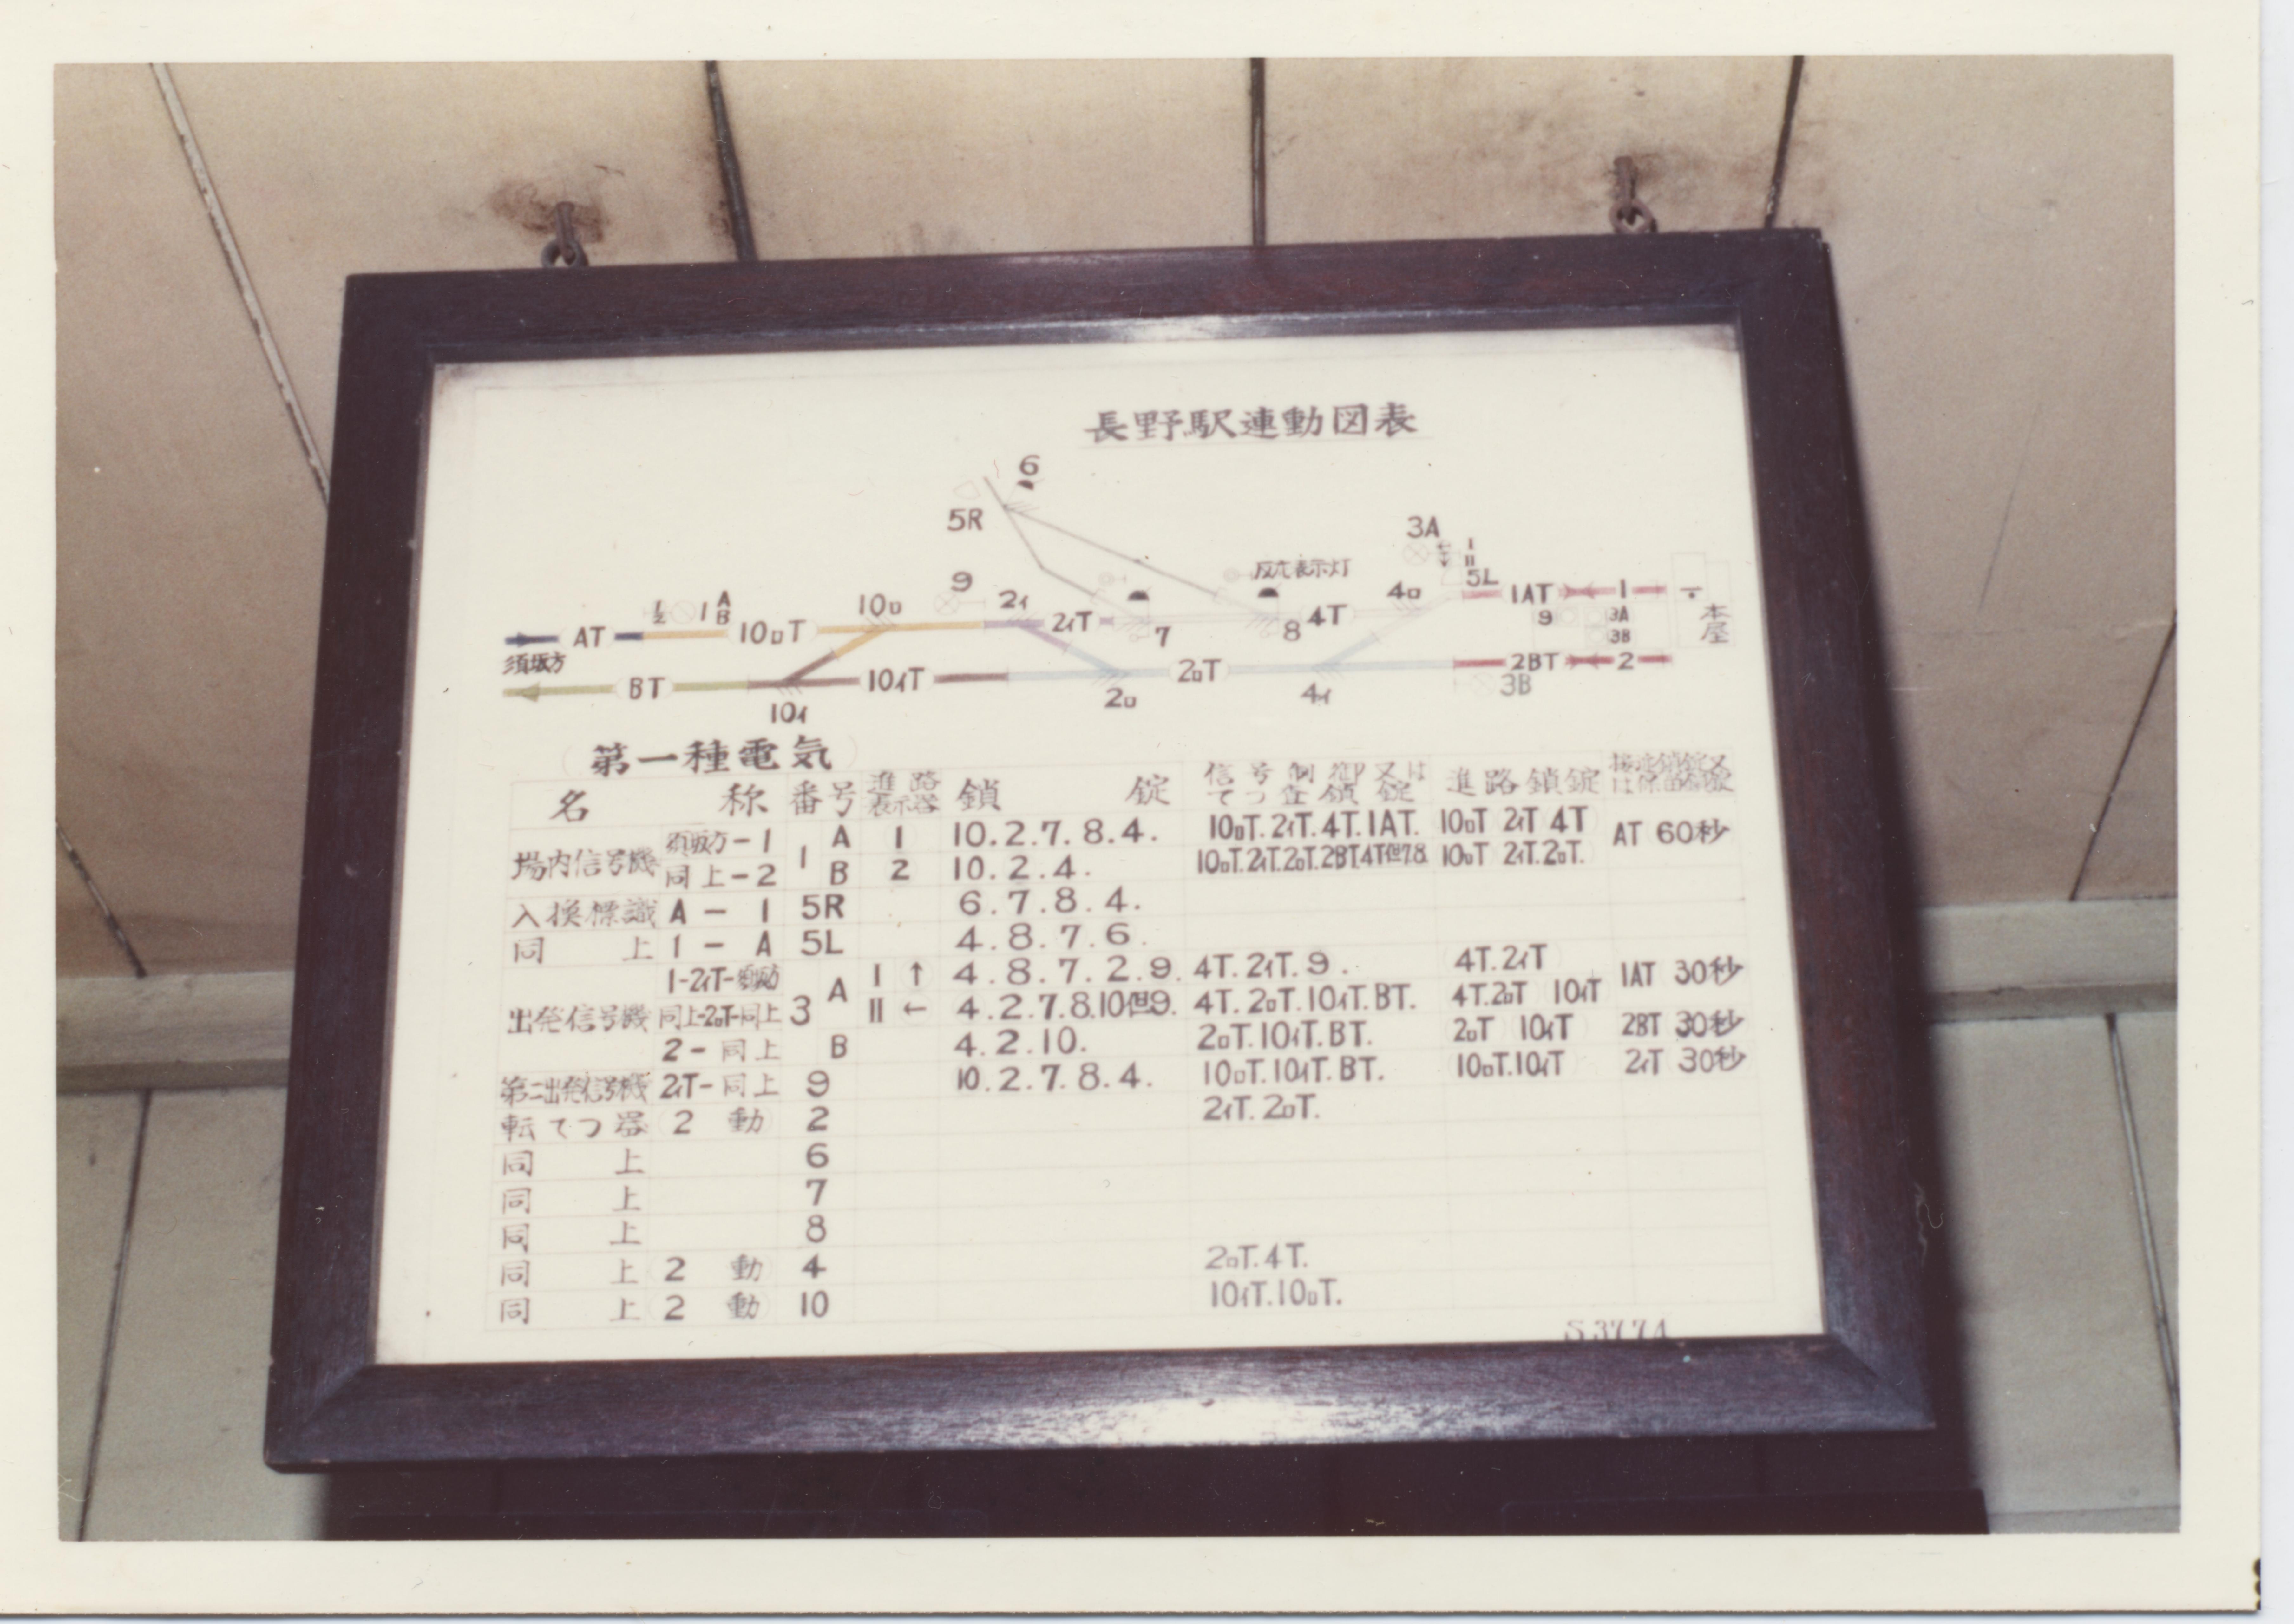 長野駅連動図表
6
5R
3A
I
II
5L
反応表示灯
9
1/2 1 A B
AT 10ロT 10ロ 2イ 2イT 7 8 4T 4ロ 1AT 1
9 3A
3B
本屋
須坂方
BT 10イ 10イT 2ロ 2ロT 4イ 2BT 2
3B
第一種電気
名 称 番号 進路表示器 鎖 錠 信号制御又はてつ査鎖錠 進路鎖錠
場内信号機 須坂方-1 1 A 1 10.2.7.8.4. 10ロT.2イT.4T.1AT. 10ロT 2イT 4T AT 60秒
同上-2 B 2 10.2.4. 10ロT.2イT.2ロT.2BT.4T但7.8. 10ロT 2イT.2ロT.
入換標識 A-1 5R 6.7.8.4.
同上 1-A 5L 4.8.7.6.
出発信号機 1-2イT-須坂方 3 A I ↑ 4.8.7.2.9. 4T.2イT.9. 4T.2イT 1AT 30秒
同上-2ロT-同上 II ← 4.2.7.8.10但9. 4T.2ロT.10イT.BT. 4T.2ロT 10イT
2-同上 B 4.2.10. 2ロT.10イT.BT. 2ロT 10イT 2BT 30秒
第二出発信号機 2イT-同上 9 10.2.7.8.4. 10ロT.10イT.BT. 10ロT.10イT 2イT 30秒
転てつ器 2動 2 2イT.2ロT.
同上 6
同上 7
同上 8
同上 2動 4 2ロT.4T.
同上 2動 10 10イT.10ロT.
S37.7.4